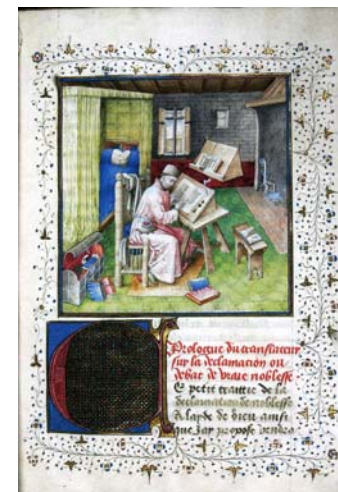 Prologue du translateur
sur la declamation ou
debat de vraie noblesse
CE petit traittie de la
declamation de noblesse
A layde de dieu ainsi
que Jay propose